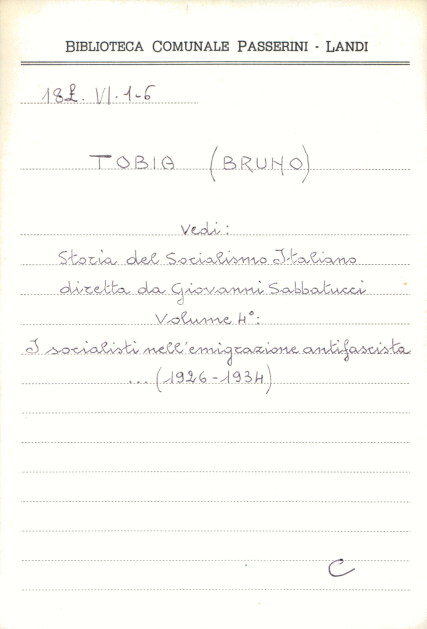 BIBLIOTECA COMUNALE PASSERINI - LANDI
18L. VI. 1-6
TOBIA (BRUNO)
Vedi:
Storia del Socialismo Italiano
diretta da Giovanni Sabbatucci
Volume 4°:
I socialisti nell'emigrazione antifascista
... (1926-1934)
C